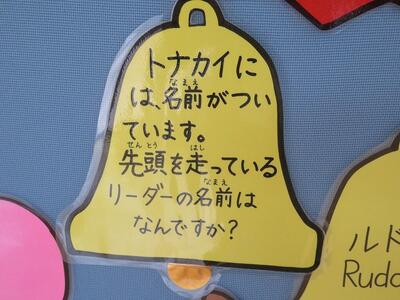 トナカイに
は、名前がつい
ています。
先頭を走っている
リーダーの名前は
なんですか?
なまえ
せんとう
はし
なまえ
ルド
Rudo